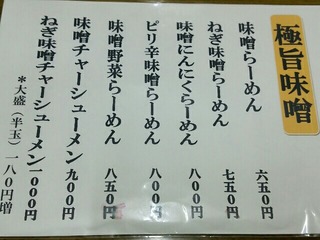 極旨味噌
味噌らーめん 六五0円
ねぎ味噌らーめん 七五0円
味噌にんにくらーめん 八00円
ピリ辛味噌らーめん 八00円
味噌野菜らーめん 八五0円
味噌チャーシューメン 九00円
ねぎ味噌チャーシューメン 1000円
*大盛(半玉)一八0円増